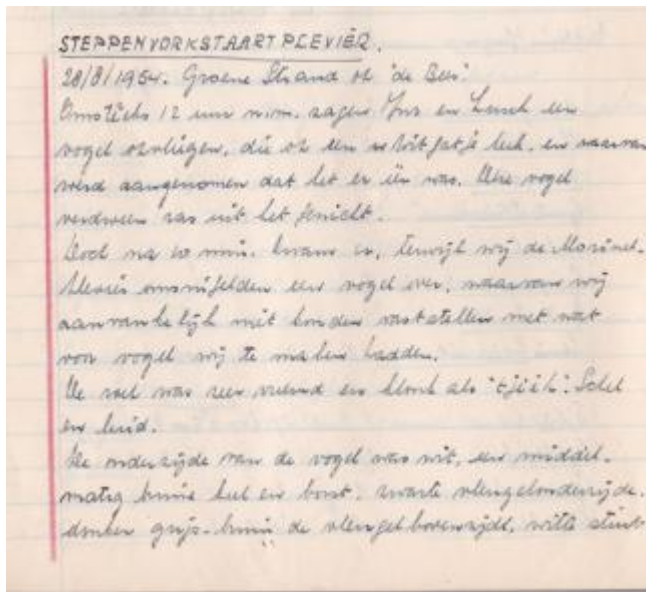 STEPPENVORKSTAARTPLEVIER.
28/8/1954. Groene Strand of "de Beer".
Omstreeks 12 uur n.m. zagen Jns en een
vogel opvliegen, die op een witgatje leek, en waarvan
werd aangenomen dat het er één was. Deze vogel
verdween ras uit het gezicht.
Doch na 10 min. kwam er, terwijl wij de Morinel-
plevier omsnifelden een vogel over, waarvan wij
aanvankelijk niet konden vaststellen met wat
voor vogel wij te maken hadden.
De roep was zeer vreemd en klonk als "tjiek". Schel
en luid.
De onderzijde van de vogel was wit, een middel-
matig bruine keel en borst, zwarte vleugelonderzijde,
donker grijs-bruin de vleugelbovenzijde, witte stuit